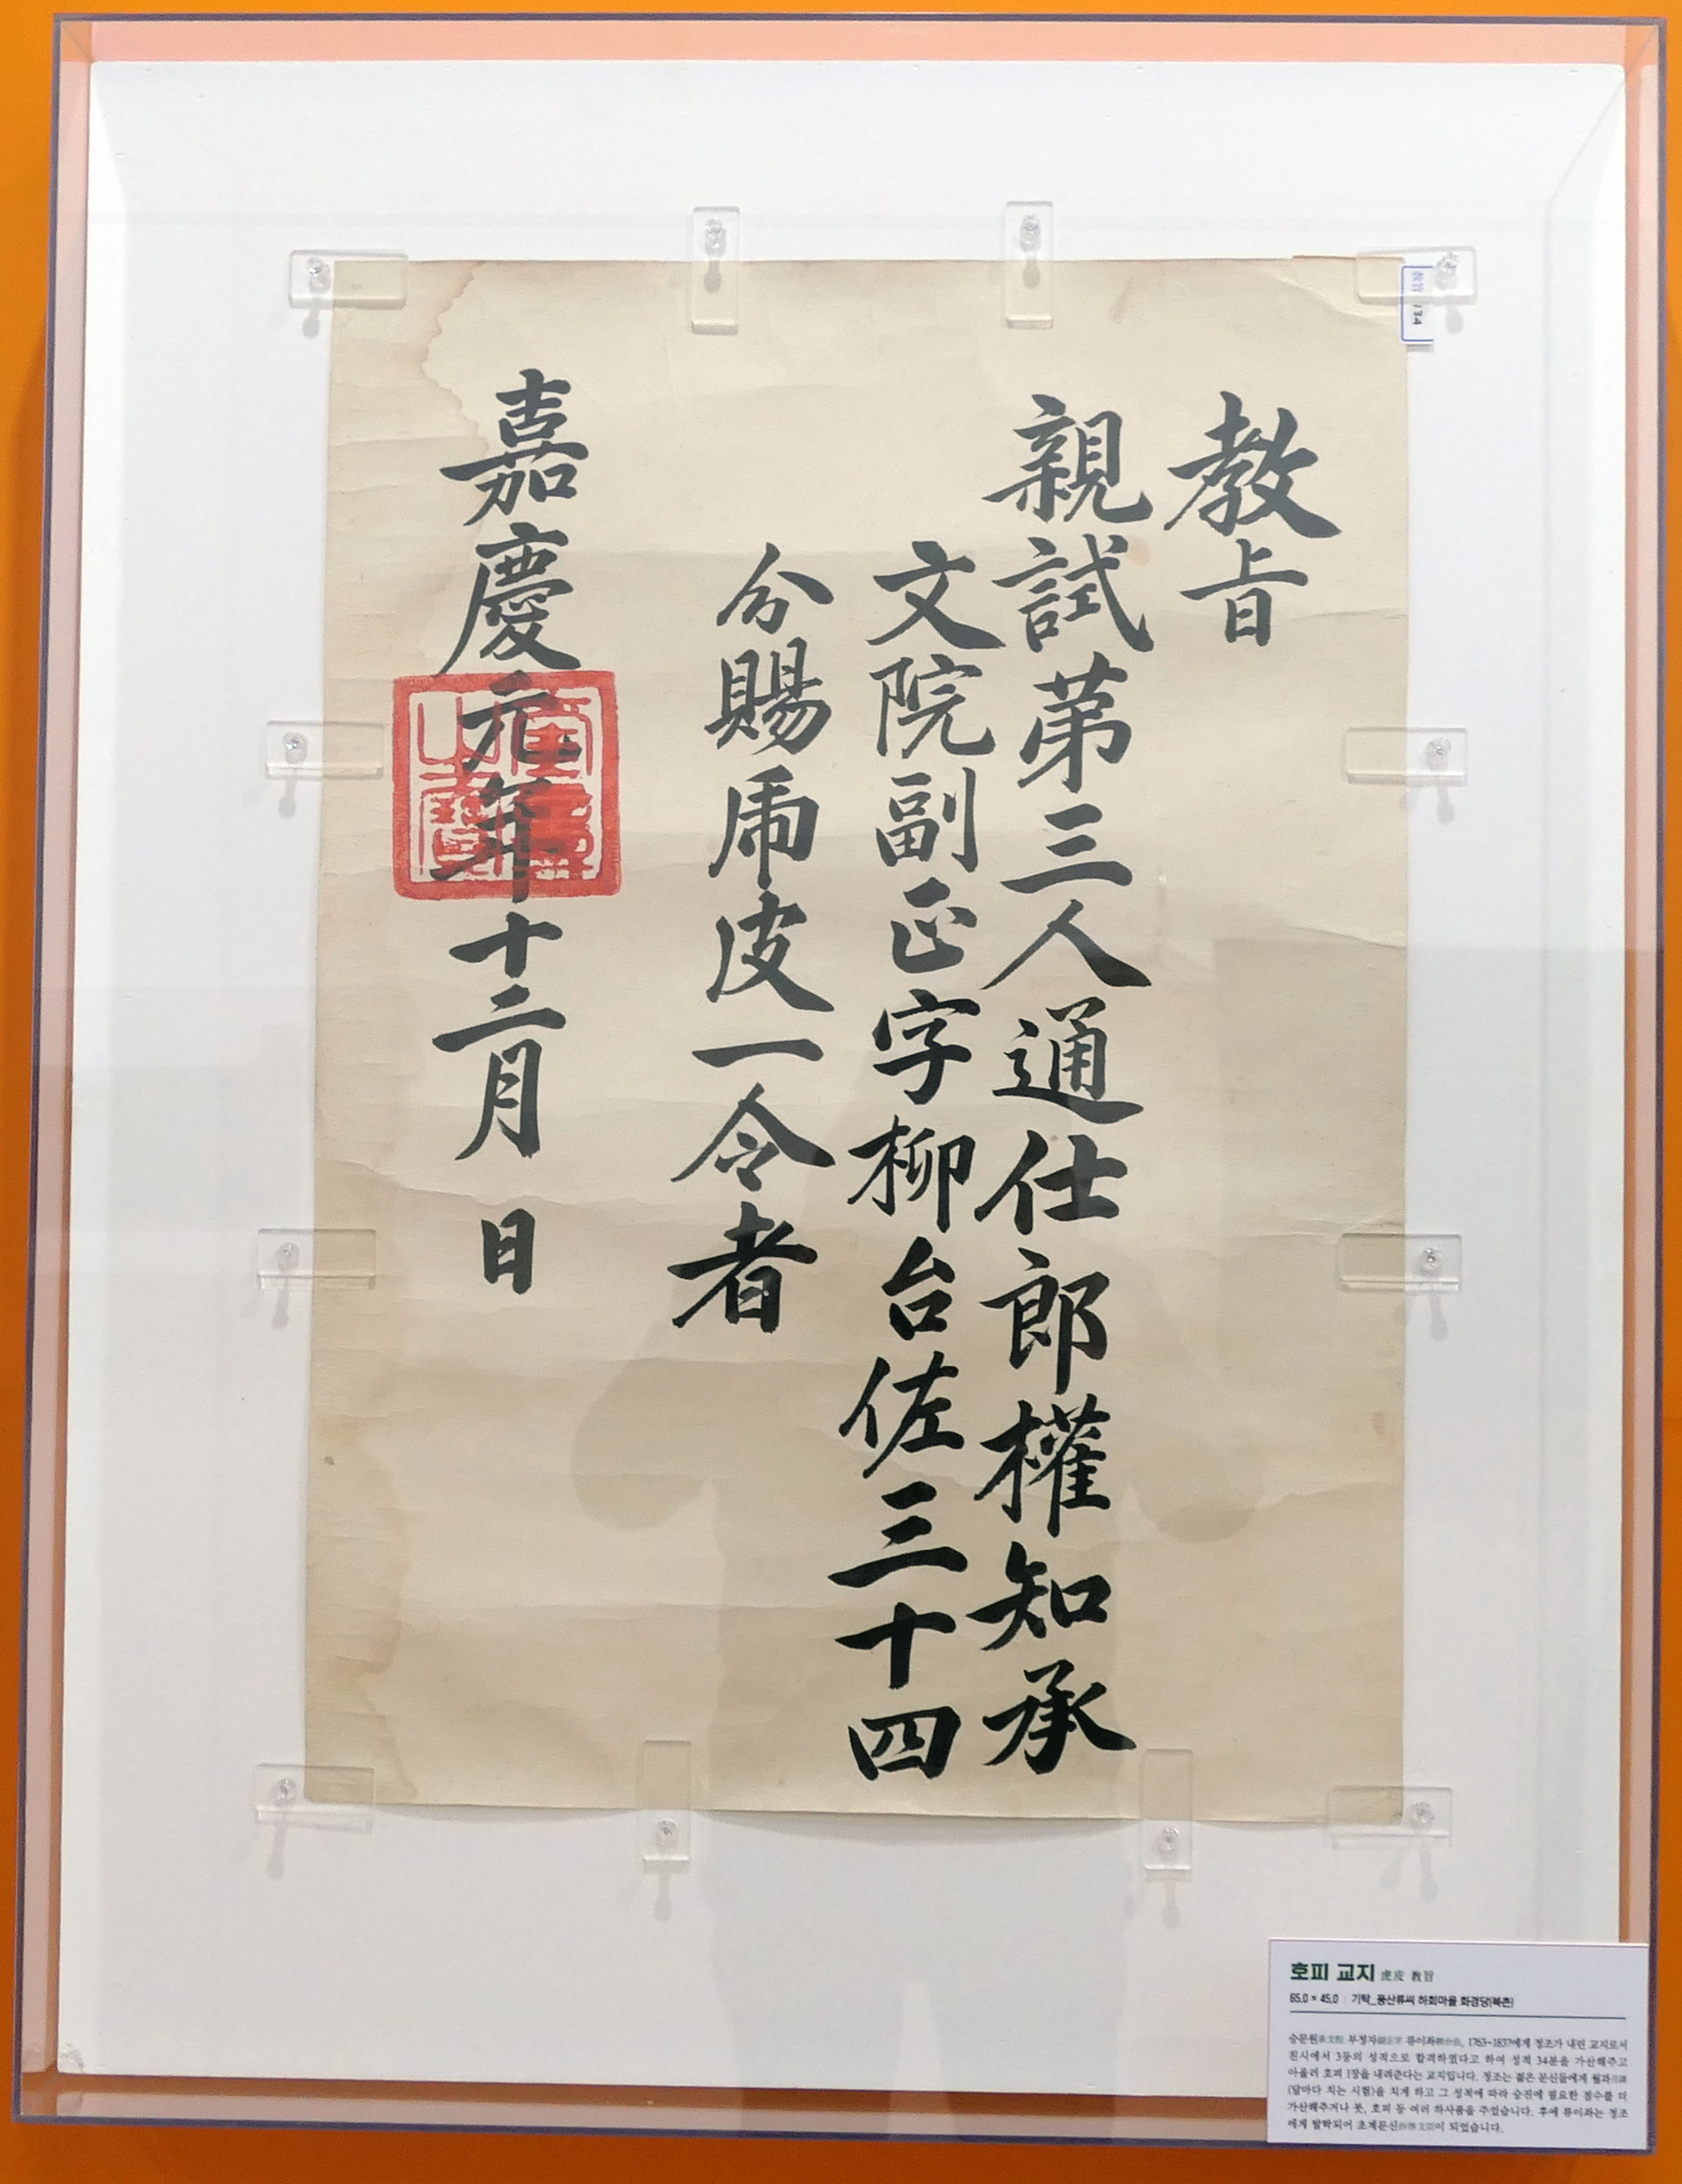 教旨
親試第三人通仕郎權知承
文院副正字柳台佐三十四
分賜虎皮一令者
嘉慶元年十二月 日
教旨 134
호피 교지 虎皮 教旨
65.0 × 45.0 | 기탁_풍산류씨 하회마을 화경당(북촌)
승문원承文院 부정자副正字 류이좌柳台佐, 1763~1837에게 정조가 내린 교지로서
친시에서 3등의 성적으로 합격하였다고 하여 성적 34분을 가산해주고
아울러 호피 1장을 내려준다는 교지입니다. 정조는 젊은 문신들에게 월과月課
(달마다 치는 시험)을 치게 하고 그 성적에 따라 승진에 필요한 점수를 더
가산해주거나 붓, 호피 등 여러 하사품을 주었습니다. 후에 류이좌는 정조
에게 발탁되어 초계문신抄啓文臣이 되었습니다.